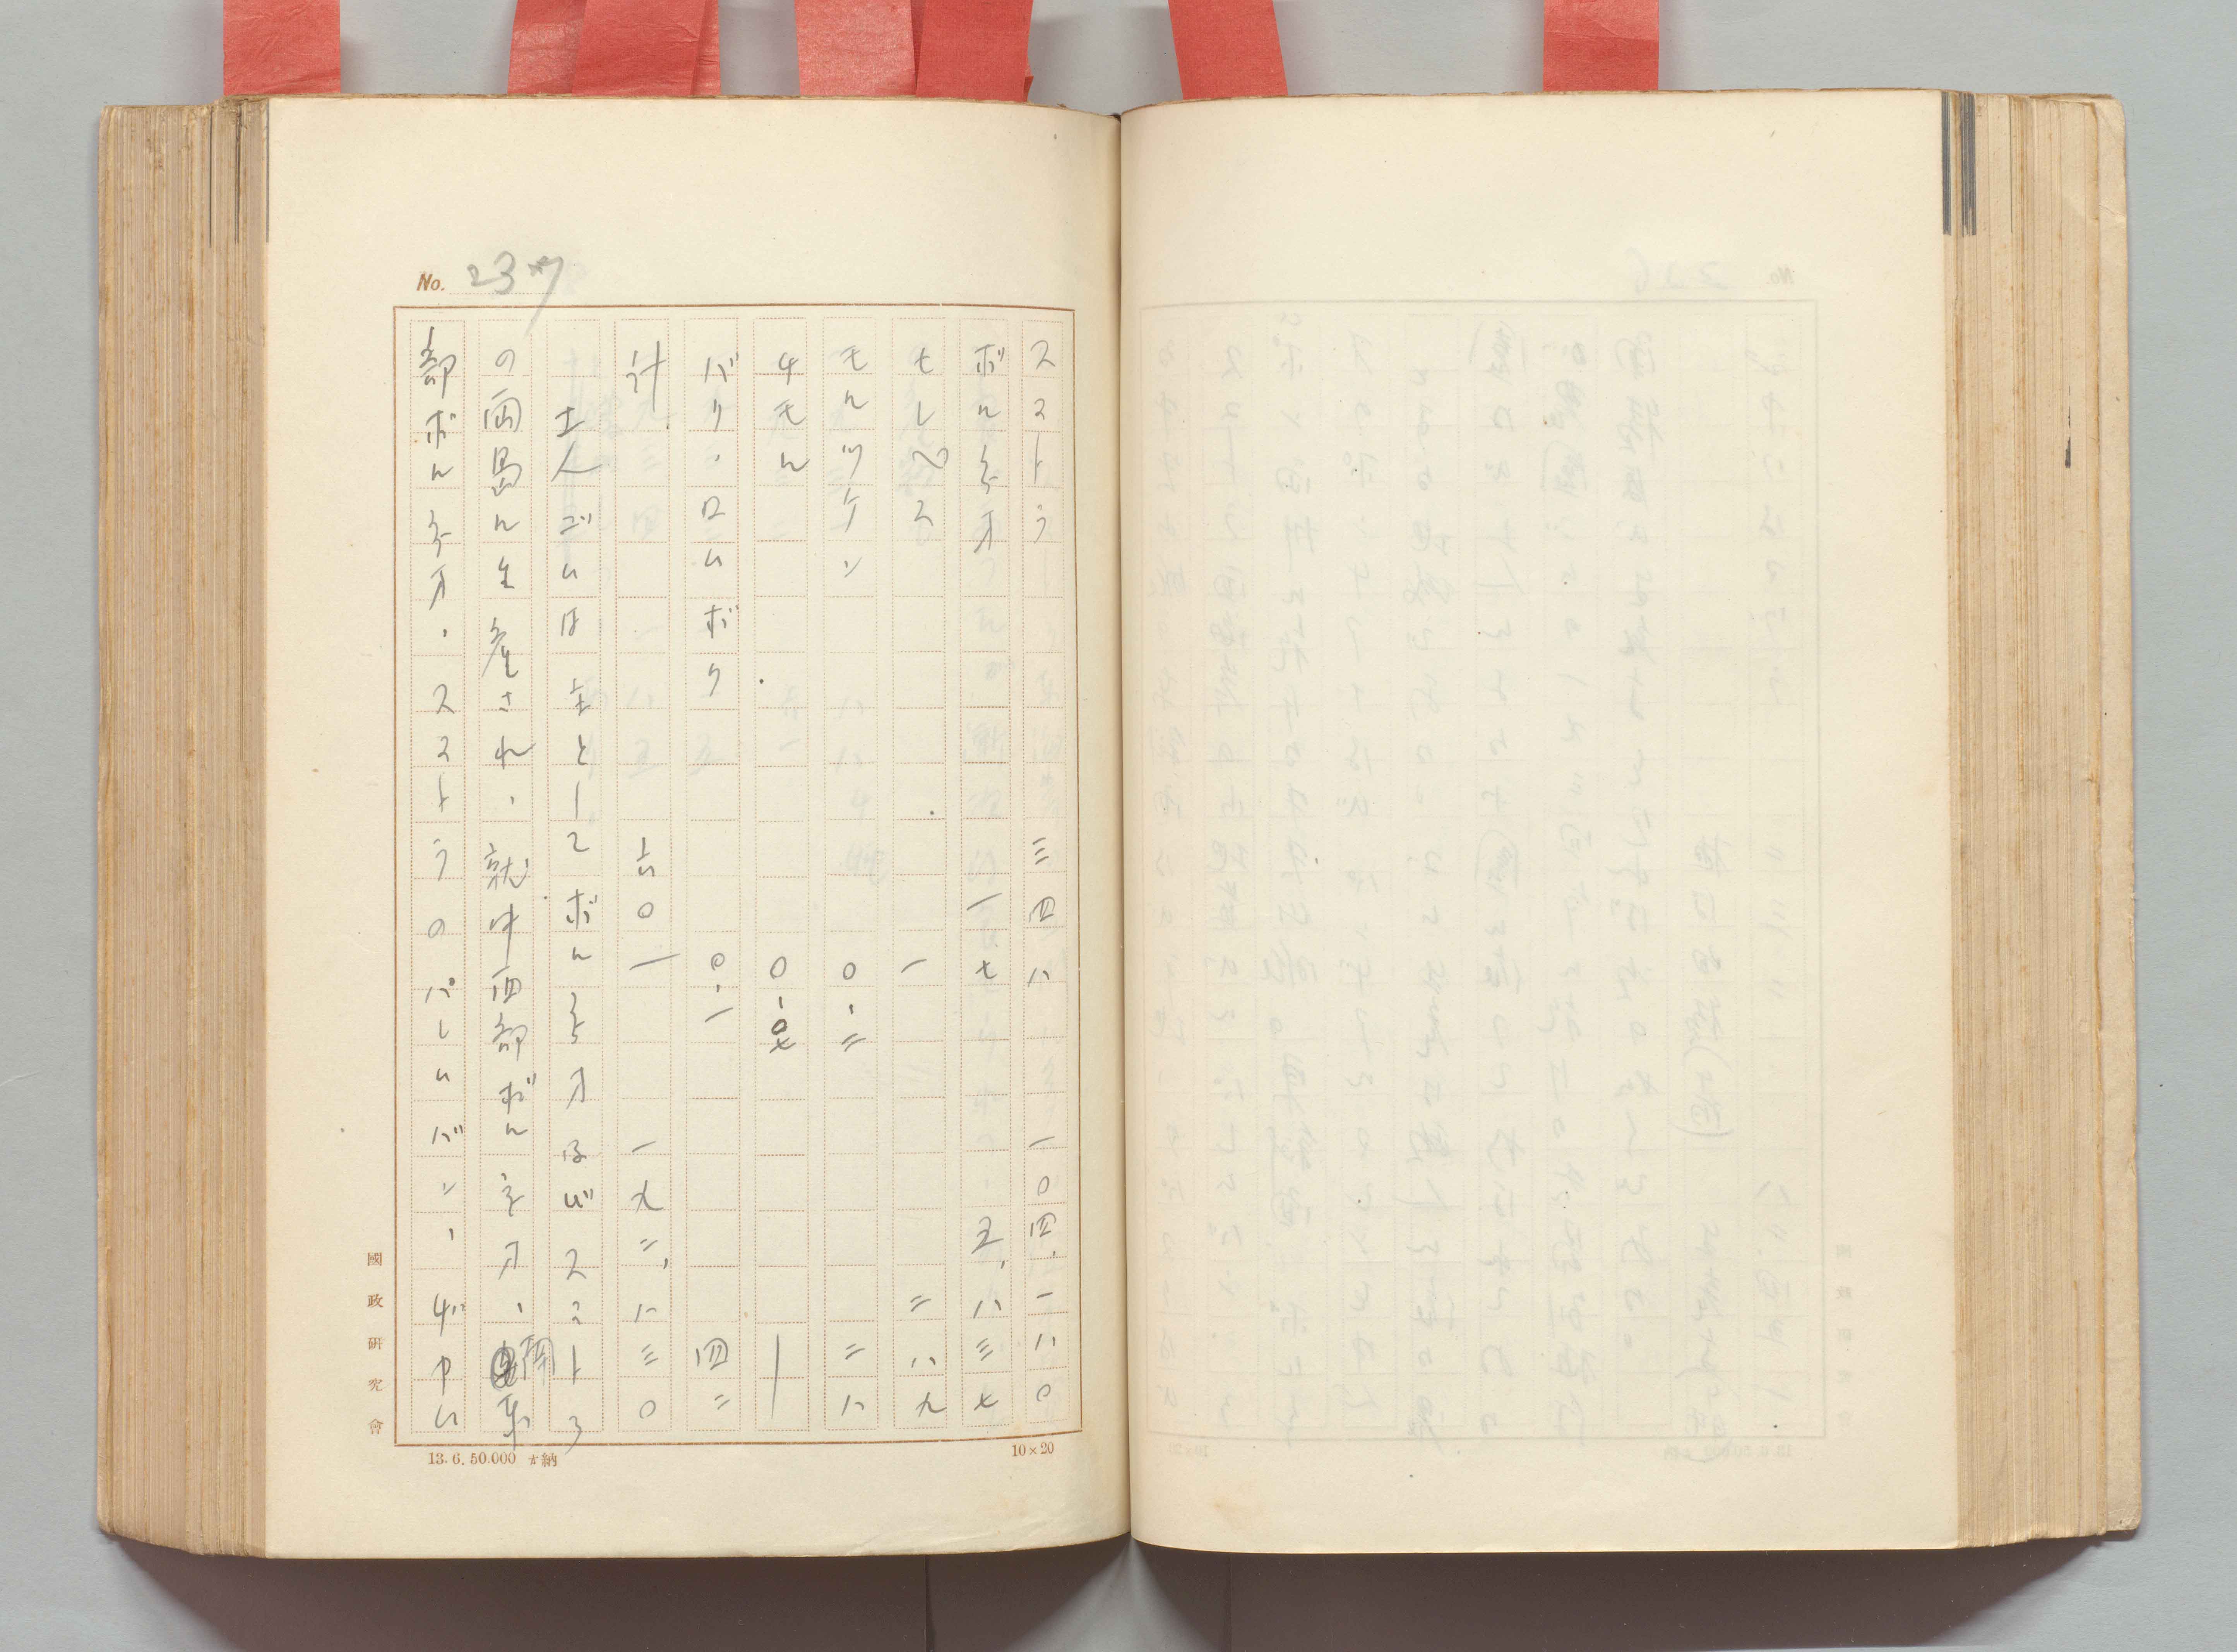 No. 237
スマトラ 三四八 一〇四、一八〇
ボルネオ 一七 五、八三七
セレベス 一 二八九
モルツケン 〇・二 二八
チモル 〇・〇七 ー
バリ・ロムボク 〇・一 四二
計 六〇一 一九二、八三〇
土人ゴムは主としてボルネオ及びスマトラ
の両島に生産され、就中西部ボルネオ、南東
部ボルネオ、スマトラのパレムバン、ヂヤム
國政研究會
13. 6. 50.000 納
10×20